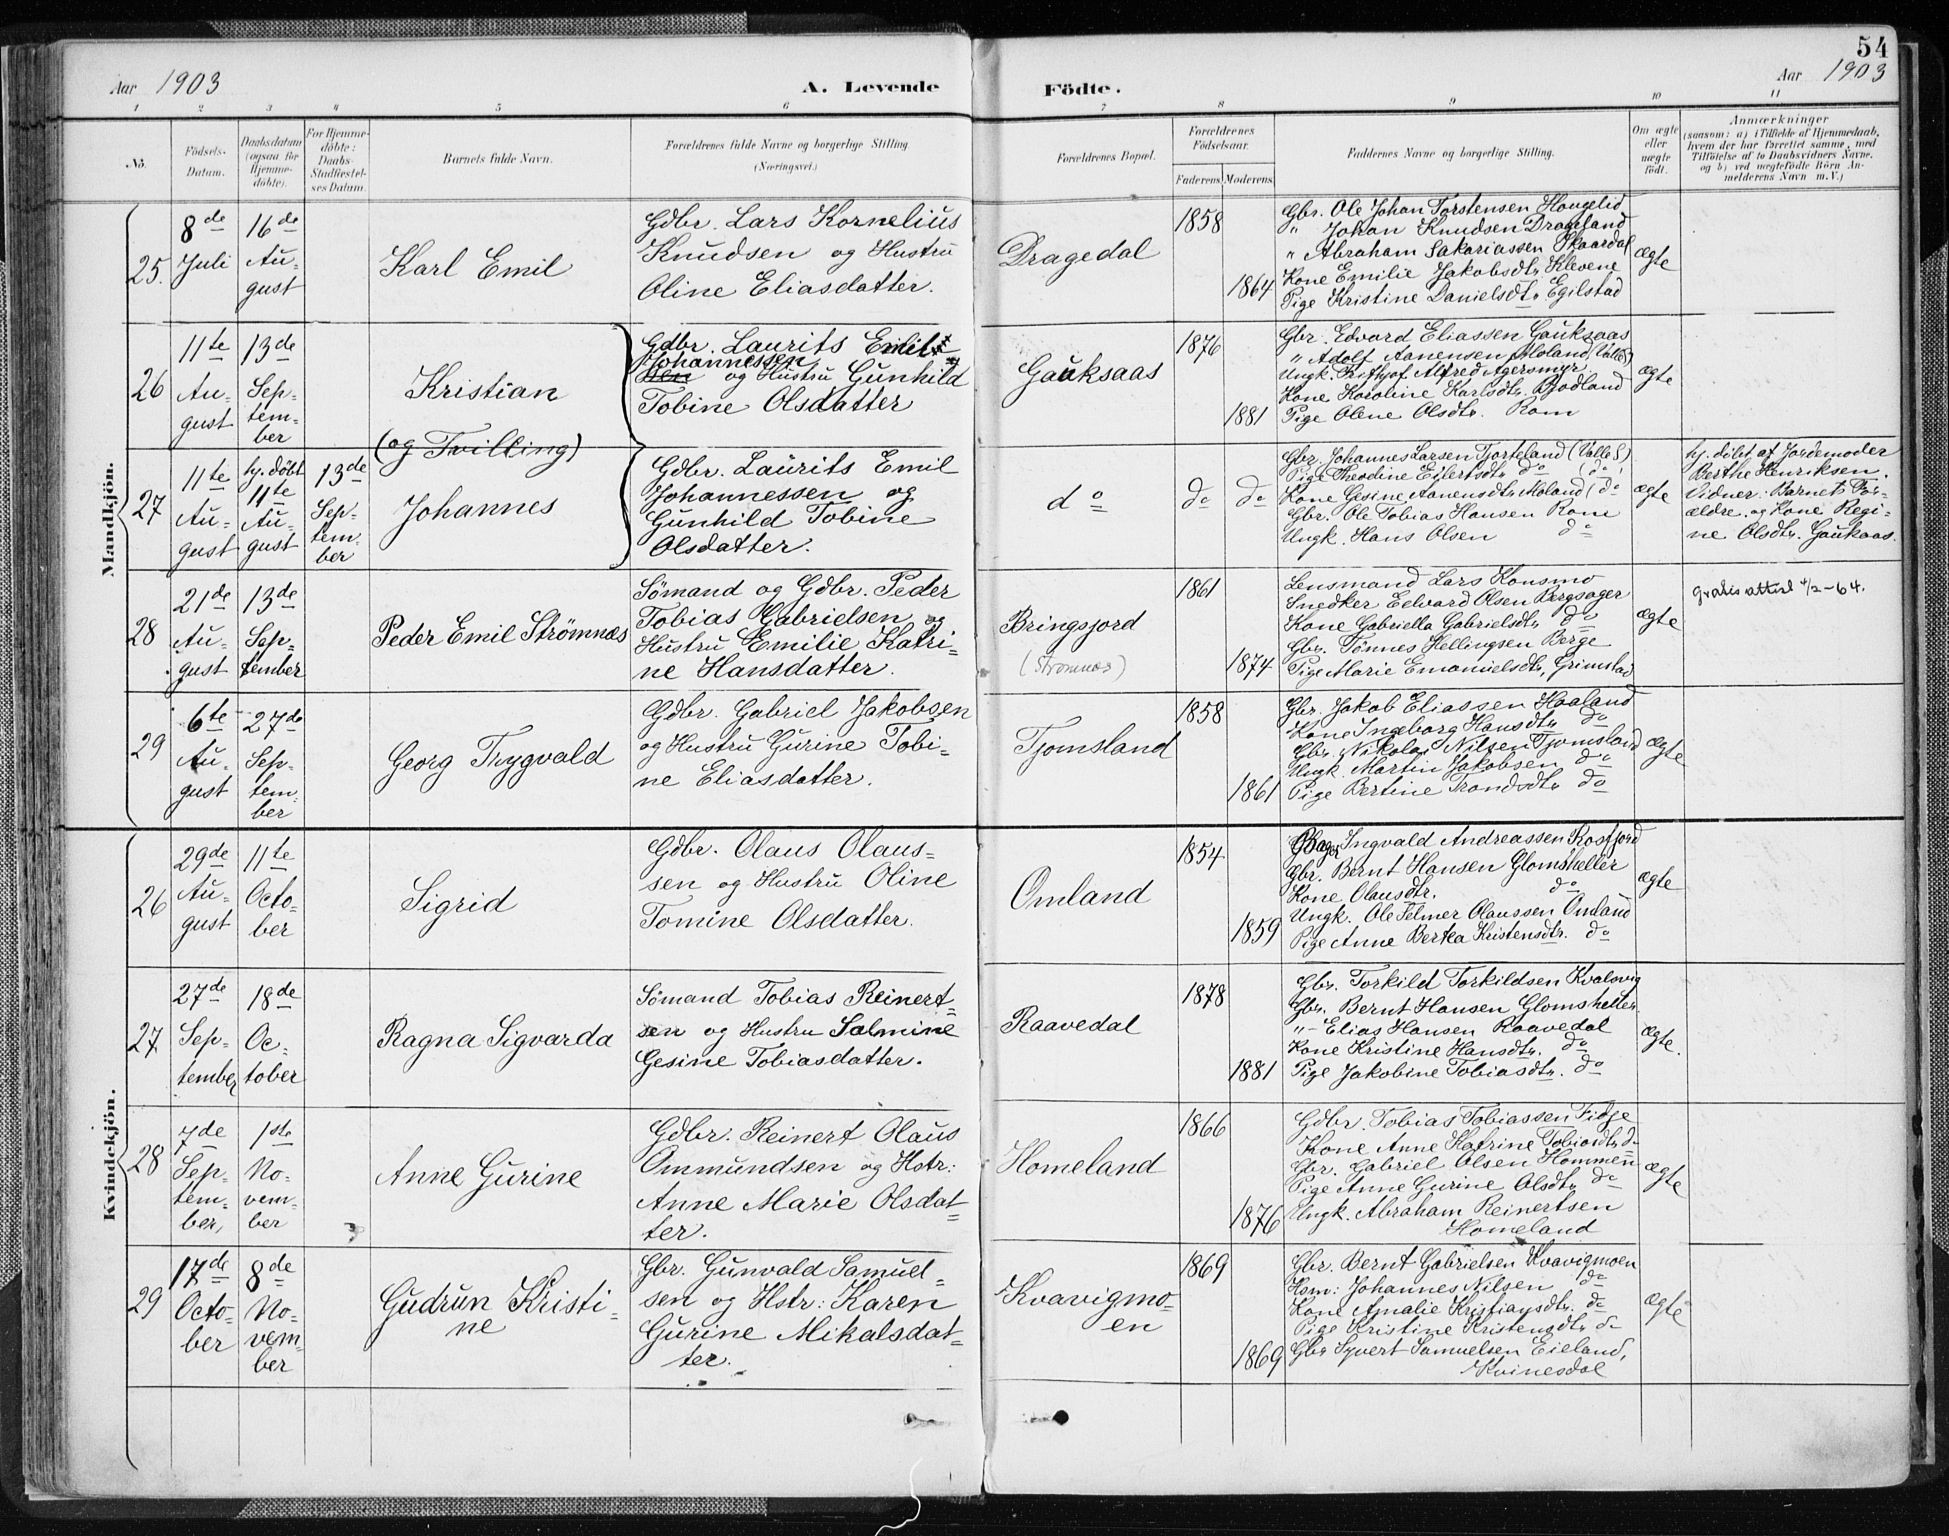 54
Aar 1903
A. Levende
Födte.
Aar 1903
1 2 3 4 5 6 7 8 9 10 11
No.
Födsels-
Datum.
Daabsdatum
(ogsaa for
Hjemme-
döbte).
For Hjemme-
döbte:
Daabs-
Stadfæstel-
ses Datum.
Barnets fulde Navn.
Forældrenes fulde Navne og borgerlige Stilling
(Næringsvei.)
Forældrenes Bopæl.
Forældrenes
Födselsaar.
Faderens
Moderens
Faddernes Navne og borgerlige Stilling.
Om ægte
eller
uægte
födt.
Anmærkninger
(saasom: a) i Tilfælde af Hjemmedaab,
hvem der har forrettet samme, med
Tilföielse af to Daabsvidners Navne,
og b) ved uægtefödte Börn An-
melderens Navn m. V.)
Mandkjön.
25.
8de
Juli
16de
Au-
gust
Karl Emil
Gdbr. Lars Kornelius
Knudsen og Hustru
Oline Eliasdatter.
Dragedal
1858
1864
Gbr. Ole Johan Torstensen Hougelid
" Johan Knudsen Drageland
" Abraham Sakariassen Skaardal
Kone Emilie Jakobsdtr. Klevene
Pige Kristine Danielsdtr. Egilstad
ægte
26
11te
Au-
gust
13de
Sep-
tem-
ber
Kristian
(og Tvilling)
Gdbr. Laurits Emil
Johannessen
og Hustru Gunhild
Tobine Olsdatter
Gauksaas
1876
1881
Gbr. Edvard Eliassen Gauksaas
" Adolf Aanensen Moland (Valle S)
Ungk. Frithjof Alfred Agersmyr
Kone Karoline Karlsdtr. Bjodland
Pige Olene Olsdtr. Rom
ægte
27
11te
Au-
gust
hj. döbt
11te
Au-
gust
13de
Sep-
tem-
ber
Johannes
Gdbr. Laurits Emil
Johannessen og
Gunhild Tobine
Olsdatter.
do
do
do
Gbr. Johannes Larsen Tjorteland (Valle S)
Pige Theodine Eilertsdtr. do (do)
Kone Gesine Aanensdtr. Moland (do
Gbr. Ole Tobias Hansen Rom
Ungk. Hans Olsen do
ægte
hj. döbt af Jordemoder
Berthe Henriksen.
Vidner: Barnets For-
ældre og Kone Regi-
ne Olsdtr. Gauksaas.
28
21de
Au-
gust
13de
Sep-
tember
Peder Emil Strømnæs
Sömand og Gdbr. Peder
Tobias Gabrielsen og
Hustru Emilie Katri-
ne Hansdatter.
Bringsjord
(Strømnæs)
1861
1874
Lensmand Lars Konsmo
Snedker Edvard Olsen Bergsager
Kone Gabriella Gabrielsdtr. do
Gbr. Tönnes Hellingsen Berge
Pige Marie Emanuelsdtr. Grimstad
ægte
gratis attest 4/2-64.
29
6te
Au-
gust
27de
Sep-
tem-
ber
Georg Trygvald
Gdbr. Gabriel Jakobsen
og Hustru Gurine Tobi-
ne Eliasdatter.
Tjomsland
1858
1861
Gbr. Jakob Eliassen Haaland
Kone Ingeborg Hansdtr. do
Gbr. Nikolai Nilsen Tjomsland
Ungk. Martin Jakobsen do
Pige Bertine Trondsdtr. do
ægte
Kvindekjön.
26
29de
Au-
gust
11te
Octo-
ber
Sigrid
Gdbr. Olaus Olaus-
sen og Hustru Oline
Tomine Olsdatter.
Omland
1854
1859
Bager Ingvald Andreassen Rosfjord
Gbr. Bernt Hansen Glomsheller
Kone Olausdtr. do
Ungk. Ole Telmer Olaussen Omland
Pige Anne Berta Kristensdtr. do
ægte
27
27de
Sep-
tember
18de
Oc-
tober
Ragna Sigvarda
Sömand Tobias Reinert-
sen og Hustru Salmine
Gesine Tobiasdatter.
Raavedal
1878
1881
Gbr. Torkild Torkildsen Kvalsvig
Gbr. Bernt Hansen Glomsheller
"- Elias Hansen Raavedal
Kone Kristine Hansdtr. do
Pige Jakobine Tobiasdtr. do
ægte.
28
7de
Sep-
tem-
ber,
1ste
No-
vem-
ber
Anne Gurine
Gdbr. Reinert Olaus
Ommundsen og Hstr:
Anne Marie Olsdat-
ter.
Homeland
1866
1876
Gdbr. Tobias Tobiassen Fidje
Kone Anne Katrine Tobiasdtr. do
Gbr. Gabriel Olsen Hommen
Pige Anne Gurine Olsdtr. do
Ungk. Abraham Reinertsen
Homeland
ægte
29
17de
Octo-
ber
8de
No-
vem-
ber
Gudrun Kristi-
ne
Gbr. Gunvald Samuel-
sen og Hstr: Karen
Gurine Mikalsdat-
ter.
Kvavigmo-
en
1869
1869
Gbr. Bernt Gabrielsen Kvavigmoen
Hsm: Johannes Nilsen do
Kone Amalie Kristiansdtr. do
Pige Kristine Kristensdtr. do
Gbr. Syvert Samuelsen Eieland,
Kvinesdal
ægte